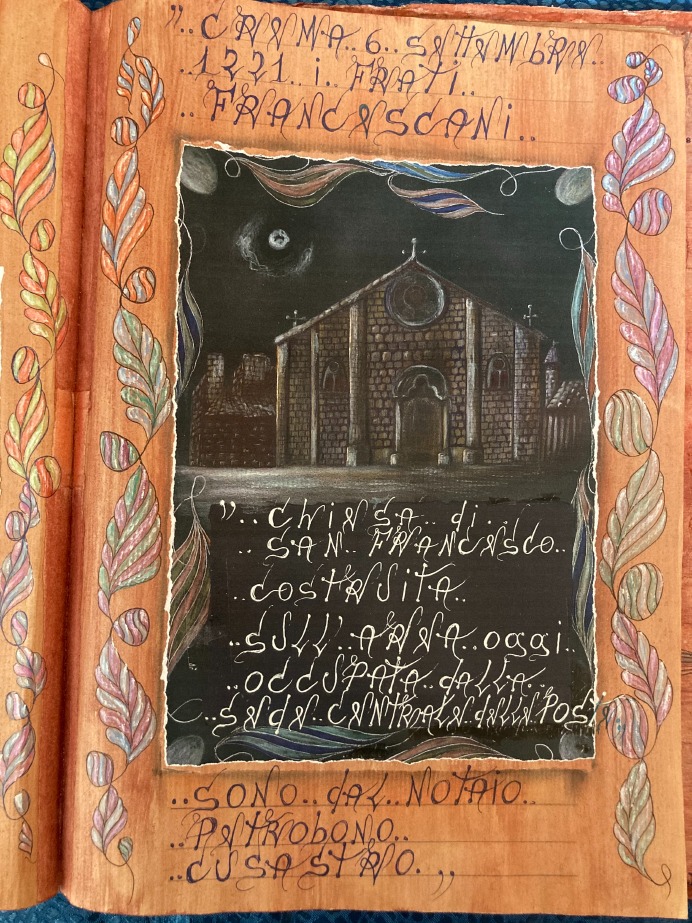 "..CREMA..6..SETTEMBRE..
..1221..i..FRATI..
..FRANCESCANI..
"..CHIESA..di..
..SAN..FRANCESCO..
..COSTRUITA..
..SULL'..AREA..oggi..
..OCCUPATA..dALLA..
..SEDE..CENTRALE..dELLE..POSTE
..SONO..dAL..NOTAIO..
..PETROBONO..